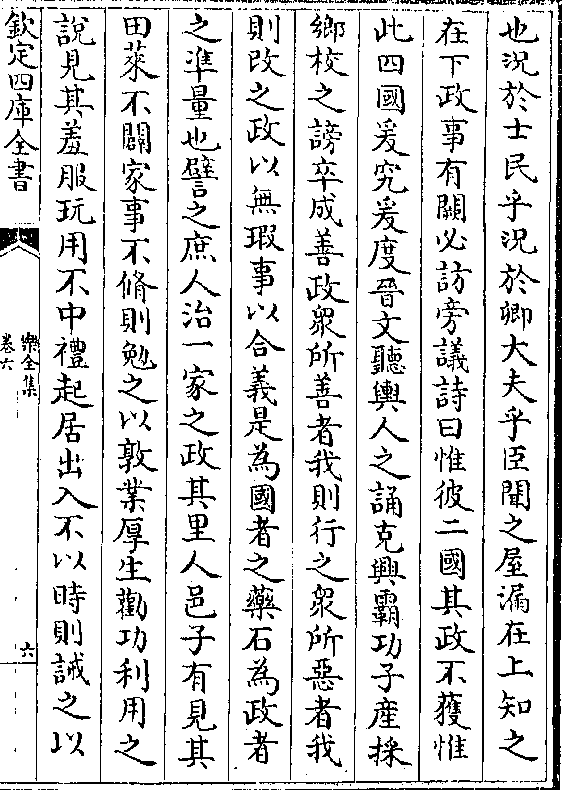 也況於士民乎況於卿大夫乎臣聞之屋漏在上知之
在下政事有闕必訪旁議詩曰惟彼二國其政不獲惟
此四國爰究爰度晉文聽輿人之誦克興霸功子產採
鄉校之謗卒成善政衆所善者我則行之衆所惡者我
則改之政以無瑕事以合義是為國者之藥石為政者
之準量也譬之庶人治一家之政其里人邑子有見其
田萊不闢家事不脩則勉之以敦業厚生勸功利用之
說見其羞服玩用不中禮起居出入不以時則誡之以
欽定四庫全書
樂全集
卷六
六